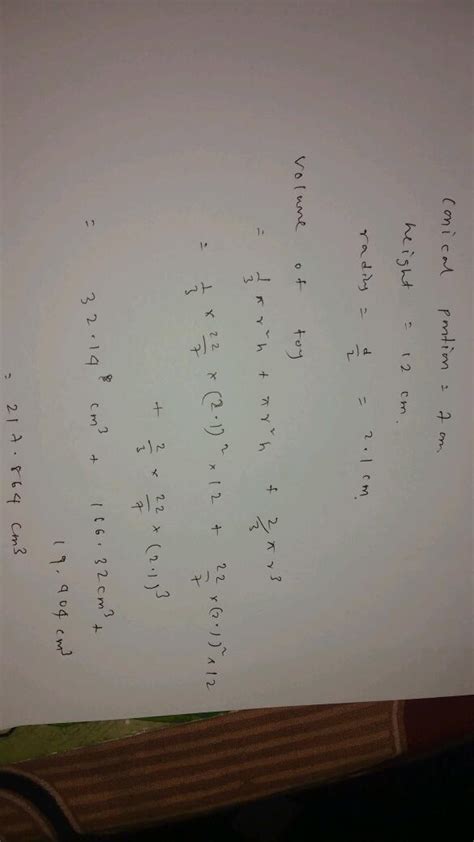 conical portion = 7 cm
height = 12 cm.
radius = d/2 = 2.1 cm.
volume of toy
= 1/3 πr²h + πr²h + 2/3 πr³
= 1/3 × 22/7 × (2.1)² × 12 + 22/7 × (2.1)² × 12
+ 2/3 × 22/7 × (2.1)³
= 32.148 cm³ + 166.32 cm³ +
19.404 cm³
= 217.864 cm³